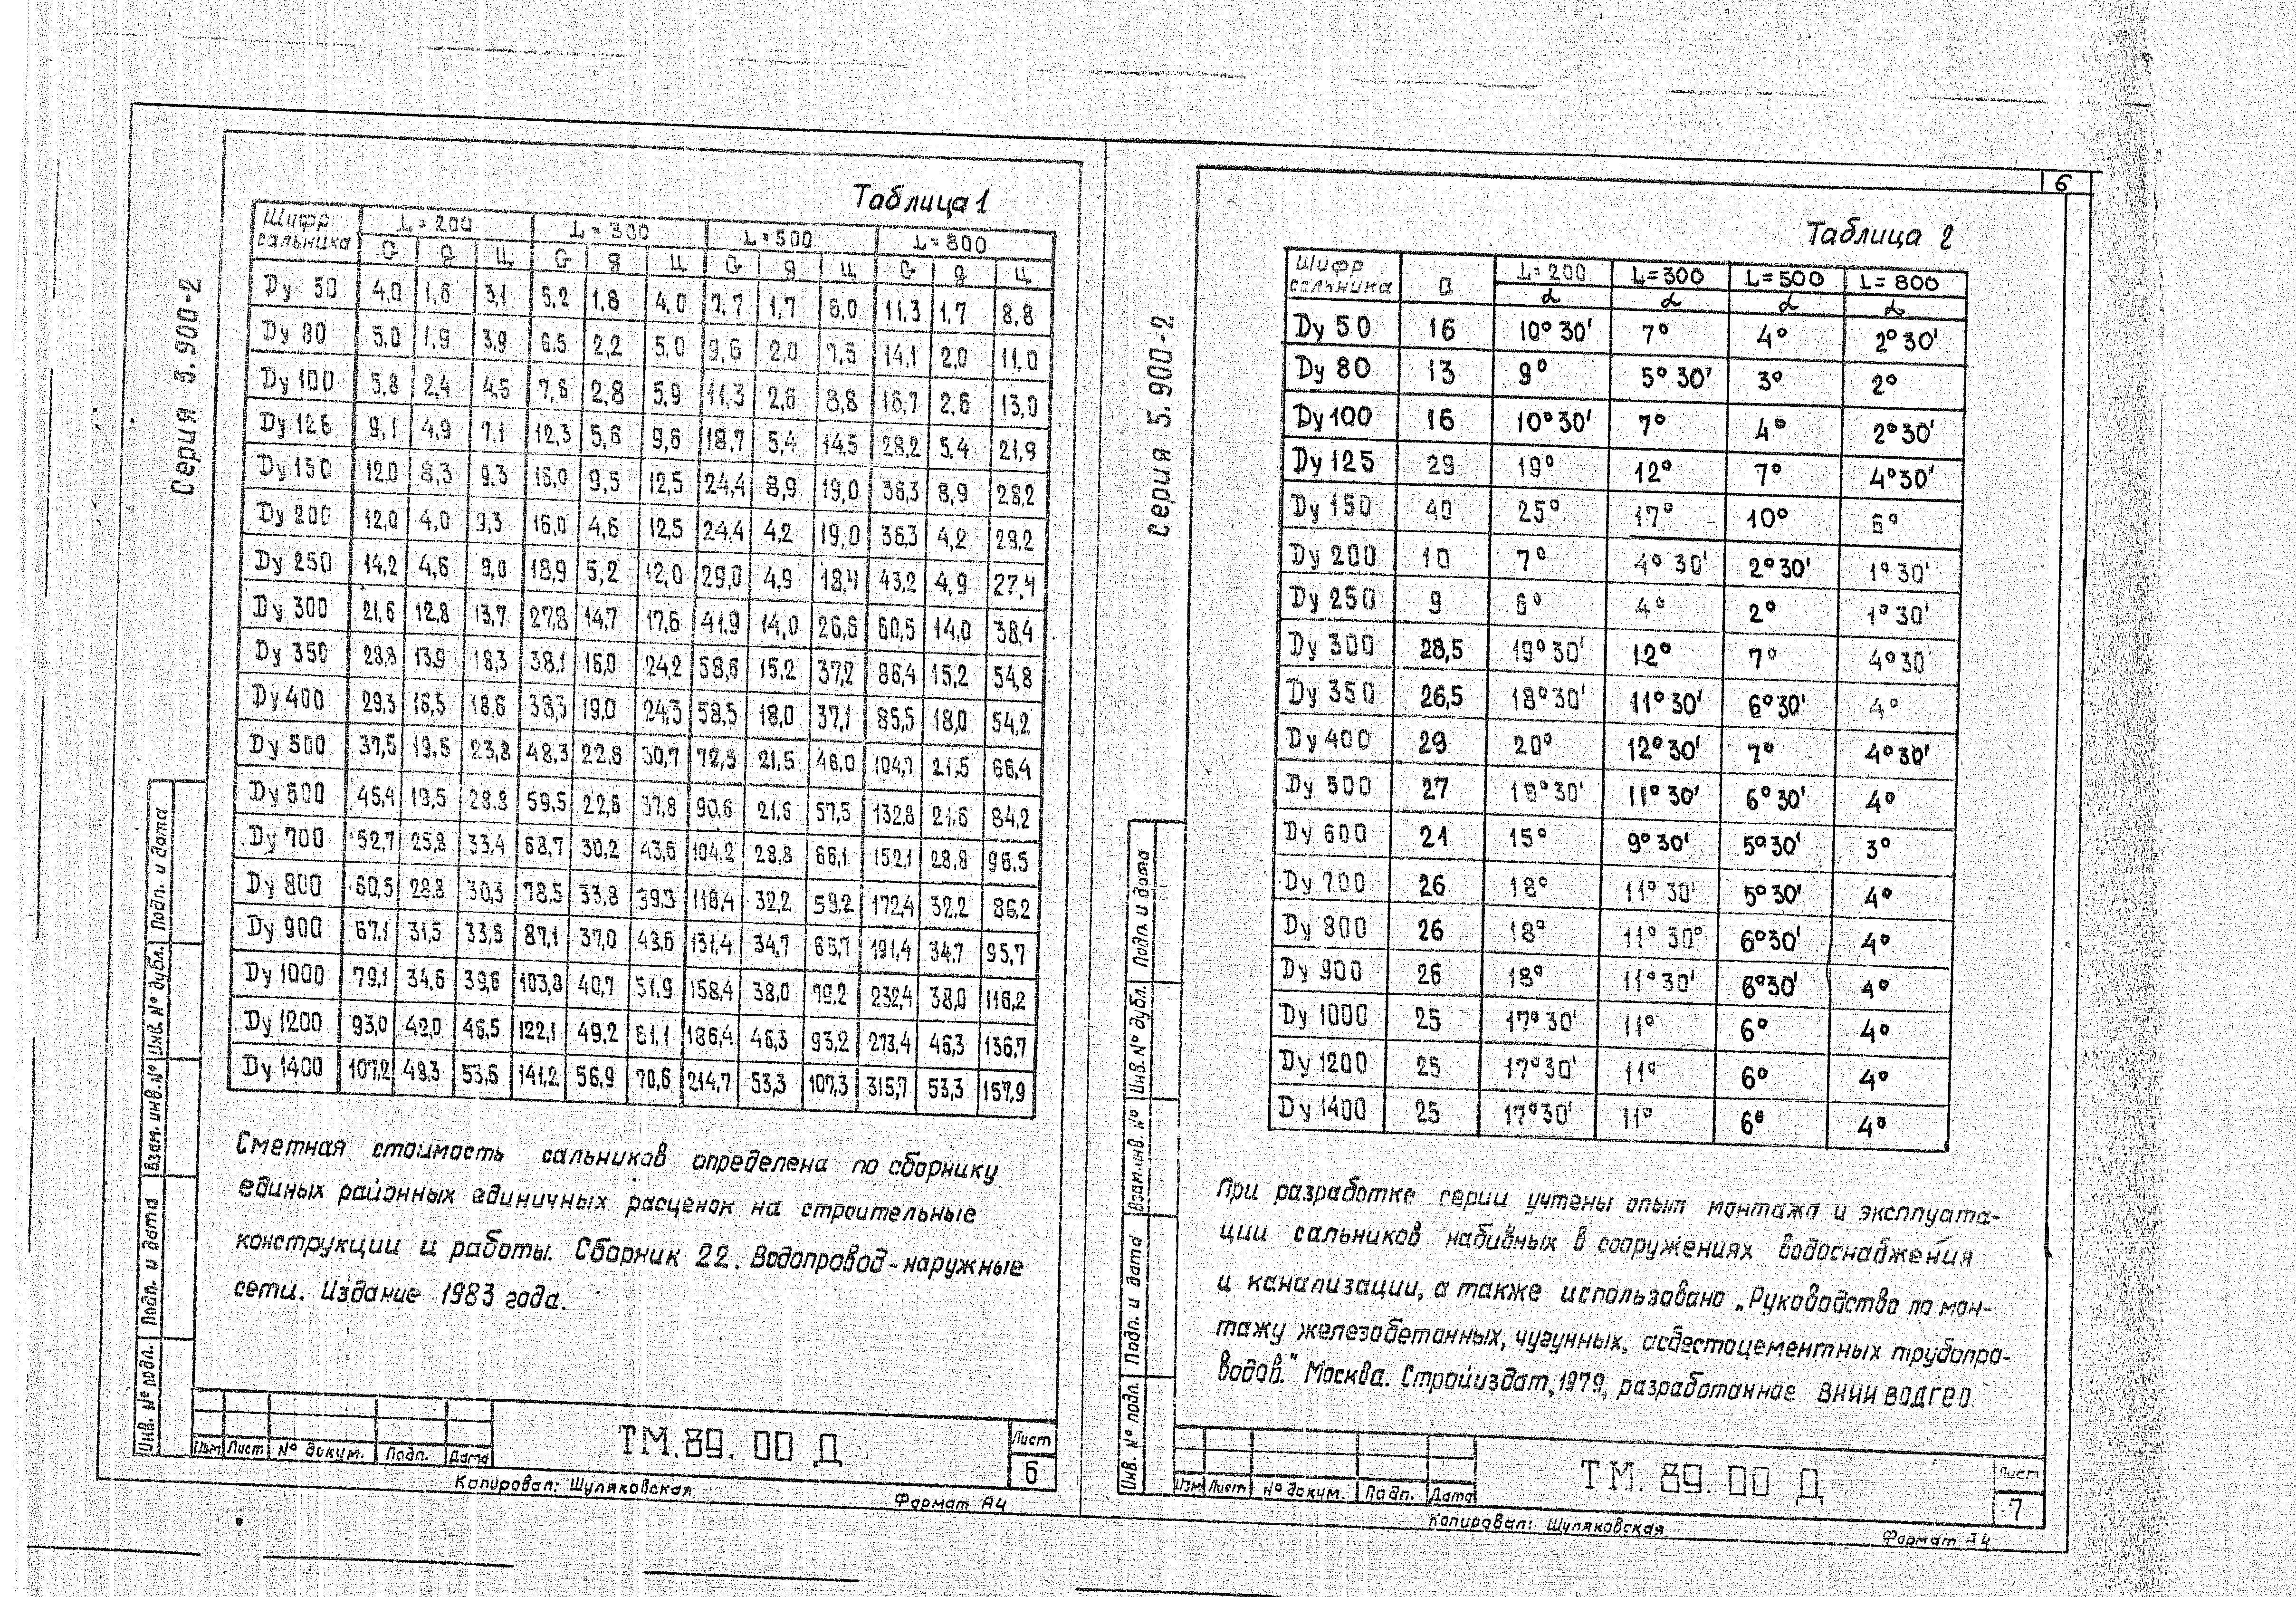 6
Серия 5.900-2
Таблица 1
Шифр сальника L=200 L=300 L=500 L=800
G g Ц G g Ц G g Ц G g Ц
Dу 50 4,0 1,6 3,1 5,2 1,8 4,0 7,7 1,7 6,0 11,3 1,7 8,8
Dу 80 5,0 1,9 3,9 6,5 2,2 5,0 9,6 2,0 7,5 14,1 2,0 11,0
Dу 100 5,8 2,4 4,5 7,6 2,8 5,9 11,3 2,6 8,8 16,7 2,6 13,0
Dу 125 9,1 4,9 7,1 12,3 5,6 9,6 18,7 5,4 14,5 28,2 5,4 21,9
Dу 150 12,0 8,3 9,3 16,0 9,5 12,5 24,4 8,9 19,0 36,3 8,9 28,2
Dу 200 12,0 4,0 9,3 16,0 4,6 12,5 24,4 4,2 19,0 36,3 4,2 28,2
Dу 250 14,2 4,6 9,0 18,9 5,2 12,0 29,0 4,9 18,4 43,2 4,9 27,4
Dу 300 21,6 12,8 13,7 27,8 14,7 17,6 41,9 14,0 26,6 60,5 14,0 38,4
Dу 350 28,8 13,9 18,3 38,1 16,0 24,2 58,6 15,2 37,2 86,4 15,2 54,8
Dу 400 29,3 16,5 18,6 38,3 19,0 24,3 58,5 18,0 37,1 85,5 18,0 54,2
Dу 500 37,5 19,6 23,8 48,3 22,6 30,7 72,5 21,5 46,0 104,7 21,5 66,4
Dу 600 45,4 19,5 28,8 59,5 22,6 37,8 90,6 21,6 57,5 132,8 21,6 84,2
Dу 700 52,7 25,8 33,4 68,7 30,2 43,6 104,2 28,8 66,1 152,1 28,8 96,5
Dу 800 60,5 28,8 30,3 78,5 33,8 39,3 118,4 32,2 59,2 172,4 32,2 86,2
Dу 900 67,1 31,5 33,6 87,1 37,0 43,6 131,4 34,7 65,7 191,4 34,7 95,7
Dу 1000 79,1 34,6 39,6 103,8 40,7 51,9 158,4 38,0 79,2 232,4 38,0 116,2
Dу 1200 93,0 42,0 46,5 122,1 49,2 61,1 186,4 46,3 93,2 273,4 46,3 136,7
Dу 1400 107,2 49,3 53,6 141,2 56,9 70,6 214,7 53,3 107,3 315,7 53,3 157,9
Сметная стоимость сальников определена по сборнику
единых районных единичных расценок на строительные
конструкции и работы. Сборник 22. Водопровод-наружные
сети. Издание 1983 года.
Инв. № подл. Подп. и дата Взам. инв. № Инв. № дубл. Подп. и дата
Изм Лист № докум. Подп. Дата
ТМ.89.00 Д
Лист
6
Копировал: Шуляковская
Формат А4
Серия 5.900-2
Таблица 2
Шифр сальника a L=200 L=300 L=500 L=800
α α α α
Dу 50 16 10°30' 7° 4° 2°30'
Dу 80 13 9° 5°30' 3° 2°
Dу 100 16 10°30' 7° 4° 2°30'
Dу 125 29 19° 12° 7° 4°30'
Dу 150 40 25° 17° 10° 6°
Dу 200 10 7° 4°30' 2°30' 1°30'
Dу 250 9 6° 4° 2° 1°30'
Dу 300 28,5 19°30' 12° 7° 4°30'
Dу 350 26,5 18°30' 11°30' 6°30' 4°
Dу 400 29 20° 12°30' 7° 4°30'
Dу 500 27 18°30' 11°30' 6°30' 4°
Dу 600 21 15° 9°30' 5°30' 3°
Dу 700 26 18° 11°30' 5°30' 4°
Dу 800 26 18° 11°30° 6°30' 4°
Dу 900 26 18° 11°30' 6°30' 4°
Dу 1000 25 17°30' 11° 6° 4°
Dу 1200 25 17°30' 11° 6° 4°
Dу 1400 25 17°30' 11° 6° 4°
При разработке серии учтены опыт монтажа и эксплуата-
ции сальников набивных в сооружениях водоснабжения
и канализации, а также использовано „Руководство по мон-
тажу железобетонных, чугунных, асбестоцементных трубопро-
водов." Москва. Стройиздат, 1979, разработанное ВНИИ ВОДГЕО
Инв. № подл. Подп. и дата Взам. инв. № Инв. № дубл. Подп. и дата
Изм Лист № докум. Подп. Дата
ТМ.89.00 Д
Лист
7
Копировал: Шуляковская
Формат А4